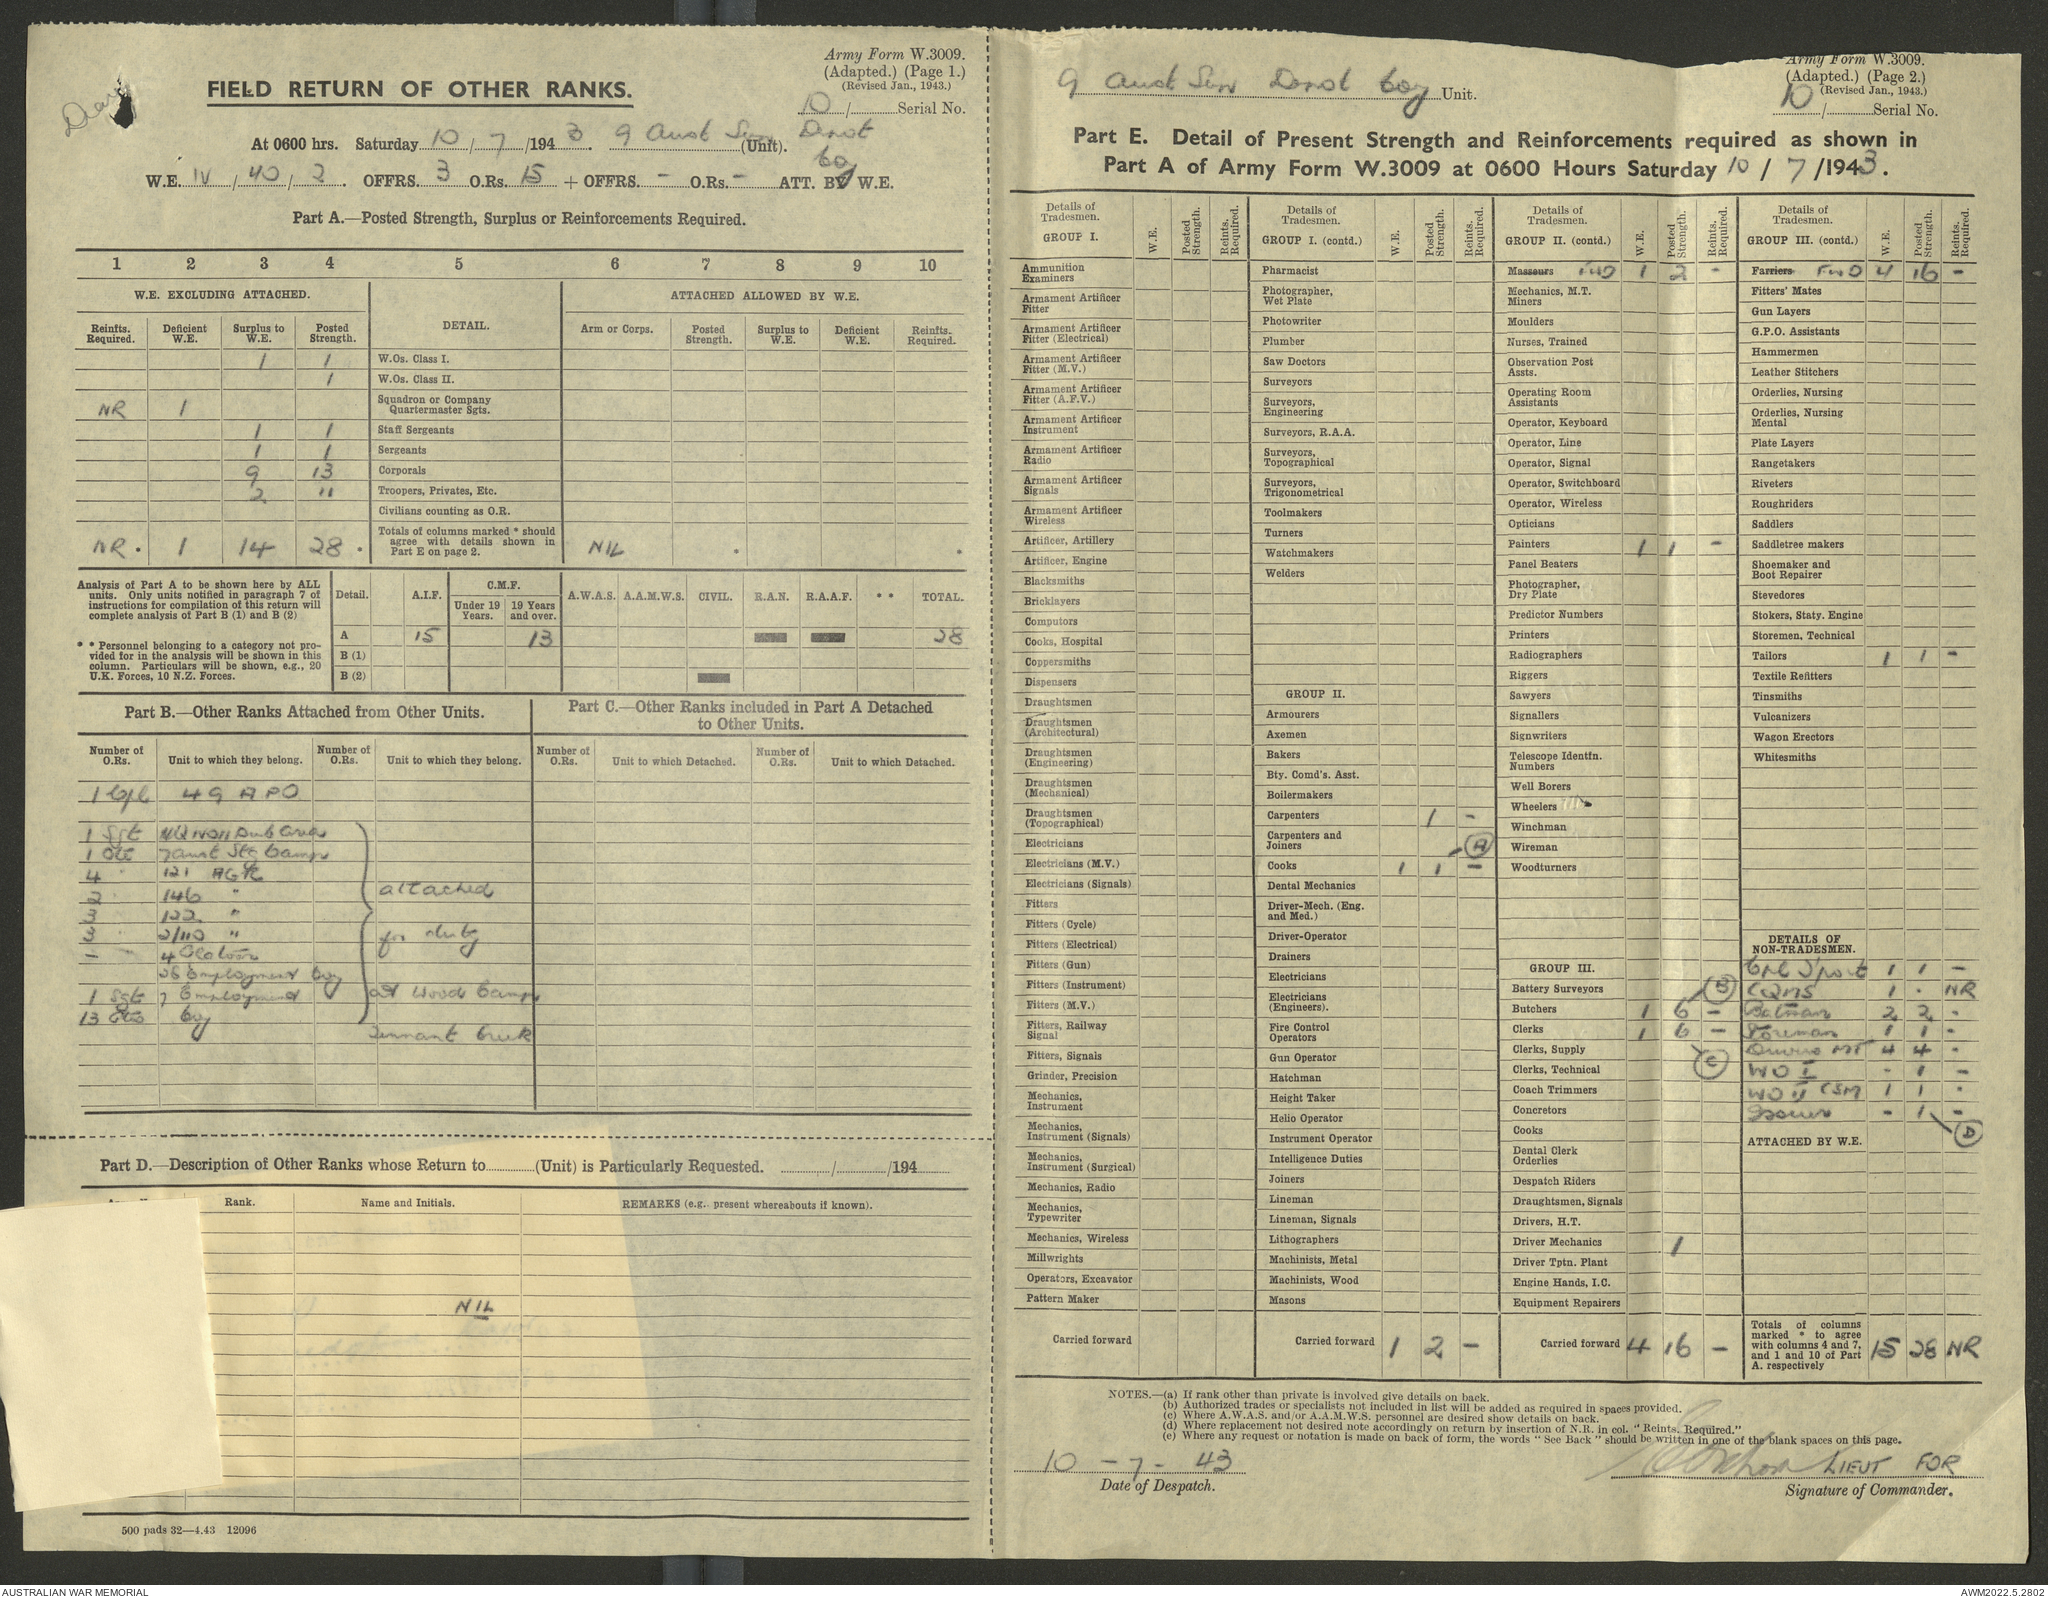 Army Form W.3009.
(Adapted.) (Page 1.)
(Revised Jan., 1943.)
10 / Serial No.
Diary
FIELD RETURN OF OTHER RANKS.
At 0600 hrs. Saturday 10 / 7 / 1943. 9 Aust Sup Depot Coy (Unit).
W.E. IV / 40 / 2 . OFFRS. 3 O.Rs. 15 + OFFRS. - O.Rs. - ATT. BY W.E.
Part A.—Posted Strength, Surplus or Reinforcements Required.
1 2 3 4 5 6 7 8 9 10
W.E. EXCLUDING ATTACHED. DETAIL. ATTACHED ALLOWED BY W.E.
Reinfts. Required. Deficient W.E. Surplus to W.E. Posted Strength. Arm or Corps. Posted Strength. Surplus to W.E. Deficient W.E. Reinfts. Required.
1 1 W.Os. Class I.
1 W.Os. Class II.
NR 1 Squadron or Company Quartermaster Sgts.
1 1 Staff Sergeants
1 1 Sergeants
9 13 Corporals
2 11 Troopers, Privates, Etc.
Civilians counting as O.R.
NR * 1 14 28 * Totals of columns marked * should agree with details shown in Part E on page 2. NIL * *
Analysis of Part A to be shown here by ALL units. Only units notified in paragraph 7 of instructions for compilation of this return will complete analysis of Part B (1) and B (2)
* * Personnel belonging to a category not provided for in the analysis will be shown in this column. Particulars will be shown, e.g., 20 U.K. Forces, 10 N.Z. Forces.
Detail. A.I.F. C.M.F. Under 19 Years. 19 Years and over. A.W.A.S. A.A.M.W.S. CIVIL. R.A.N. R.A.A.F. * * TOTAL.
A 15 13 28
B (1)
B (2)
Part B.—Other Ranks Attached from Other Units.
Number of O.Rs. Unit to which they belong. Number of O.Rs. Unit to which they belong.
1 Cpl 49 APO
1 Sgt HQ NO 11 Sub Area
1 Pte 7 Aust Stg Camp
4 " 121 AGTC
2 " 146 " attached
3 " 122 "
3 " 2/110 " for duty
- 4 Platoon
26 Employment Coy
1 Sgt 7 Employment at Woods Camp
13 Ptes Coy
Tennant Creek
Part C.—Other Ranks included in Part A Detached to Other Units.
Number of O.Rs. Unit to which Detached. Number of O.Rs. Unit to which Detached.
Part D.—Description of Other Ranks whose Return to (Unit) is Particularly Requested. / /194
Rank. Name and Initials. REMARKS (e.g. present whereabouts if known).
NIL
500 pads 32—4.43 12096
Army Form W.3009.
(Adapted.) (Page 2.)
(Revised Jan., 1943.)
10 / Serial No.
9 Aust Sup Depot Coy Unit.
Part E. Detail of Present Strength and Reinforcements required as shown in
Part A of Army Form W.3009 at 0600 Hours Saturday 10 / 7 / 1943.
Details of Tradesmen. W.E. Posted Strength. Reints. Required.
GROUP I.
Ammunition Examiners
Armament Artificer Fitter
Armament Artificer Fitter (Electrical)
Armament Artificer Fitter (M.V.)
Armament Artificer Fitter (A.F.V.)
Armament Artificer Instrument
Armament Artificer Radio
Armament Artificer Signals
Armament Artificer Wireless
Artificer, Artillery
Artificer, Engine
Blacksmiths
Bricklayers
Computors
Cooks, Hospital
Coppersmiths
Dispensers
Draughtsmen
Draughtsmen (Architectural)
Draughtsmen (Engineering)
Draughtsmen (Mechanical)
Draughtsmen (Topographical)
Electricians
Electricians (M.V.)
Electricians (Signals)
Fitters
Fitters (Cycle)
Fitters (Electrical)
Fitters (Gun)
Fitters (Instrument)
Fitters (M.V.)
Fitters, Railway Signal
Fitters, Signals
Grinder, Precision
Mechanics, Instrument
Mechanics, Instrument (Signals)
Mechanics, Instrument (Surgical)
Mechanics, Radio
Mechanics, Typewriter
Mechanics, Wireless
Millwrights
Operators, Excavator
Pattern Maker
Carried forward
Details of Tradesmen. W.E. Posted Strength. Reints. Required.
GROUP I. (contd.)
Pharmacist
Photographer, Wet Plate
Photowriter
Plumber
Saw Doctors
Surveyors
Surveyors, Engineering
Surveyors, R.A.A.
Surveyors, Topographical
Surveyors, Trigonometrical
Toolmakers
Turners
Watchmakers
Welders
GROUP II.
Armourers
Axemen
Bakers
Bty. Comd's. Asst.
Boilermakers
Carpenters 1 -
Carpenters and Joiners A
Cooks 1 1 -
Dental Mechanics
Driver-Mech. (Eng. and Med.)
Driver-Operator
Drainers
Electricians
Electricians (Engineers).
Fire Control Operators
Gun Operator
Hatchman
Height Taker
Helio Operator
Instrument Operator
Intelligence Duties
Joiners
Lineman
Lineman, Signals
Lithographers
Machinists, Metal
Machinists, Wood
Masons
Carried forward 1 2 -
Details of Tradesmen. W.E. Posted Strength. Reints. Required.
GROUP II. (contd.)
Masseurs FWD 1 2 -
Mechanics, M.T.
Miners
Moulders
Nurses, Trained
Observation Post Assts.
Operating Room Assistants
Operator, Keyboard
Operator, Line
Operator, Signal
Operator, Switchboard
Operator, Wireless
Opticians
Painters 1 1 -
Panel Beaters
Photographer, Dry Plate
Predictor Numbers
Printers
Radiographers
Riggers
Sawyers
Signallers
Signwriters
Telescope Identfn. Numbers
Well Borers
Wheelers
Winchman
Wireman
Woodturners
GROUP III.
Battery Surveyors B
Butchers 1 6 -
Clerks 1 6 -
Clerks, Supply C
Clerks, Technical
Coach Trimmers
Concretors
Cooks
Dental Clerk Orderlies
Despatch Riders
Draughtsmen, Signals
Drivers, H.T.
Driver Mechanics 1
Driver Tptn. Plant
Engine Hands, I.C.
Equipment Repairers
Carried forward 4 16 -
Details of Tradesmen. W.E. Posted Strength. Reints. Required.
GROUP III. (contd.)
Farriers FWD 4 16 -
Fitters' Mates
Gun Layers
G.P.O. Assistants
Hammermen
Leather Stitchers
Orderlies, Nursing
Orderlies, Nursing Mental
Plate Layers
Rangetakers
Riveters
Roughriders
Saddlers
Saddletree makers
Shoemaker and Boot Repairer
Stevedores
Stokers, Staty. Engine
Storemen, Technical
Tailors 1 1 -
Textile Refitters
Tinsmiths
Vulcanizers
Wagon Erectors
Whitesmiths
DETAILS OF NON-TRADESMEN.
Cpl S'port 1 1 -
CQMS 1 . NR
Batman 2 2 -
Foreman 1 1 -
Drivers MT 4 4 -
WO I - 1 -
WO II CSM 1 1 -
Issuer - 1 -
D
ATTACHED BY W.E.
Totals of columns marked * to agree with columns 4 and 7, and 1 and 10 of Part A. respectively 15 28 NR
NOTES.—(a) If rank other than private is involved give details on back.
(b) Authorized trades or specialists not included in list will be added as required in spaces provided.
(c) Where A.W.A.S. and/or A.A.M.W.S. personnel are desired show details on back.
(d) Where replacement not desired note accordingly on return by insertion of N.R. in col. "Reints. Required."
(e) Where any request or notation is made on back of form, the words "See Back" should be written in one of the blank spaces on this page.
10 - 7 - 43
Date of Despatch.
LIEUT FOR
Signature of Commander.
AUSTRALIAN WAR MEMORIAL
AWM2022.5.2802